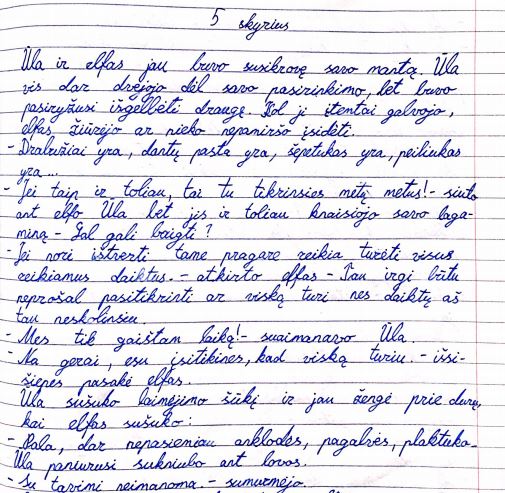 5 skyrius
Ūla ir elfas jau buvo susikrovę savo mantą. Ūla
vis dar dvejojo dėl savo pasirinkimo, bet buvo
pasiryžusi išgelbėti draugę. Kol ji įtemtai galvojo,
elfas žiūrėjo ar nieko nepamiršo įsidėti.
- Drabužiai yra, dantų pasta yra, šepetukas yra, peiliukas
yra...
- Jei taip ir toliau, tai tu tikrinsies metų metus! - siuto
ant elfo Ūla bet jis ir toliau knaisiojo savo laga-
miną - Gal gali baigti?
- Jei nori ištverti tame pragare reikia turėti visus
reikiamus daiktus. - atkirto elfas - Tau irgi būtu
neprošal pasitikrinti ar viską turi nes daiktų aš
tau neskolinsiu.
- Mes tik gaištam laiką! - suaimanavo Ūla.
- Na gerai, esu įsitikinęs, kad viską turiu. - išsi-
šiepęs pasakė elfas.
Ūla sušuko laimėjimo šūkį ir jau žengė prie durų,
kai elfas sušuko:
- Pala, dar nepasiemiau anklodės, pagalvės, plaktuko.
Ūla paniurusi sukniubo ant lovos.
- Su tavimi neimanoma. - sumurmėjo.